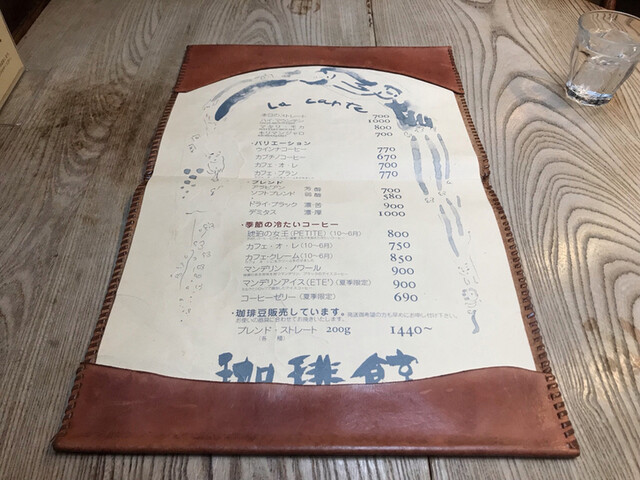 La carte
700
1000
800
キリマンジャロ 700
・バリエーション
ウインナコーヒー 770
カプチノコーヒー 670
カフェ・オ・レ 700
カフェ・ブラン 770
ブレンド
アラビアン 芳醇 700
ソフトブレンド 580
ドライ・ブラック 濃・苦 900
デミタス 濃・厚 1000
・季節の冷たいコーヒー
琥珀の女王(PETITE)(10~6月) 800
カフェ・オ・レ(10~6月) 750
カフェ・クレーム(10~6月) 850
マンデリン・ノワール 900
マンデリンアイス(ETE')(夏季限定) 900
コーヒーゼリー(夏季限定) 690
・珈琲豆販売しています。
ブレンド・ストレート 200g 1440~
(各種)
珈琲館